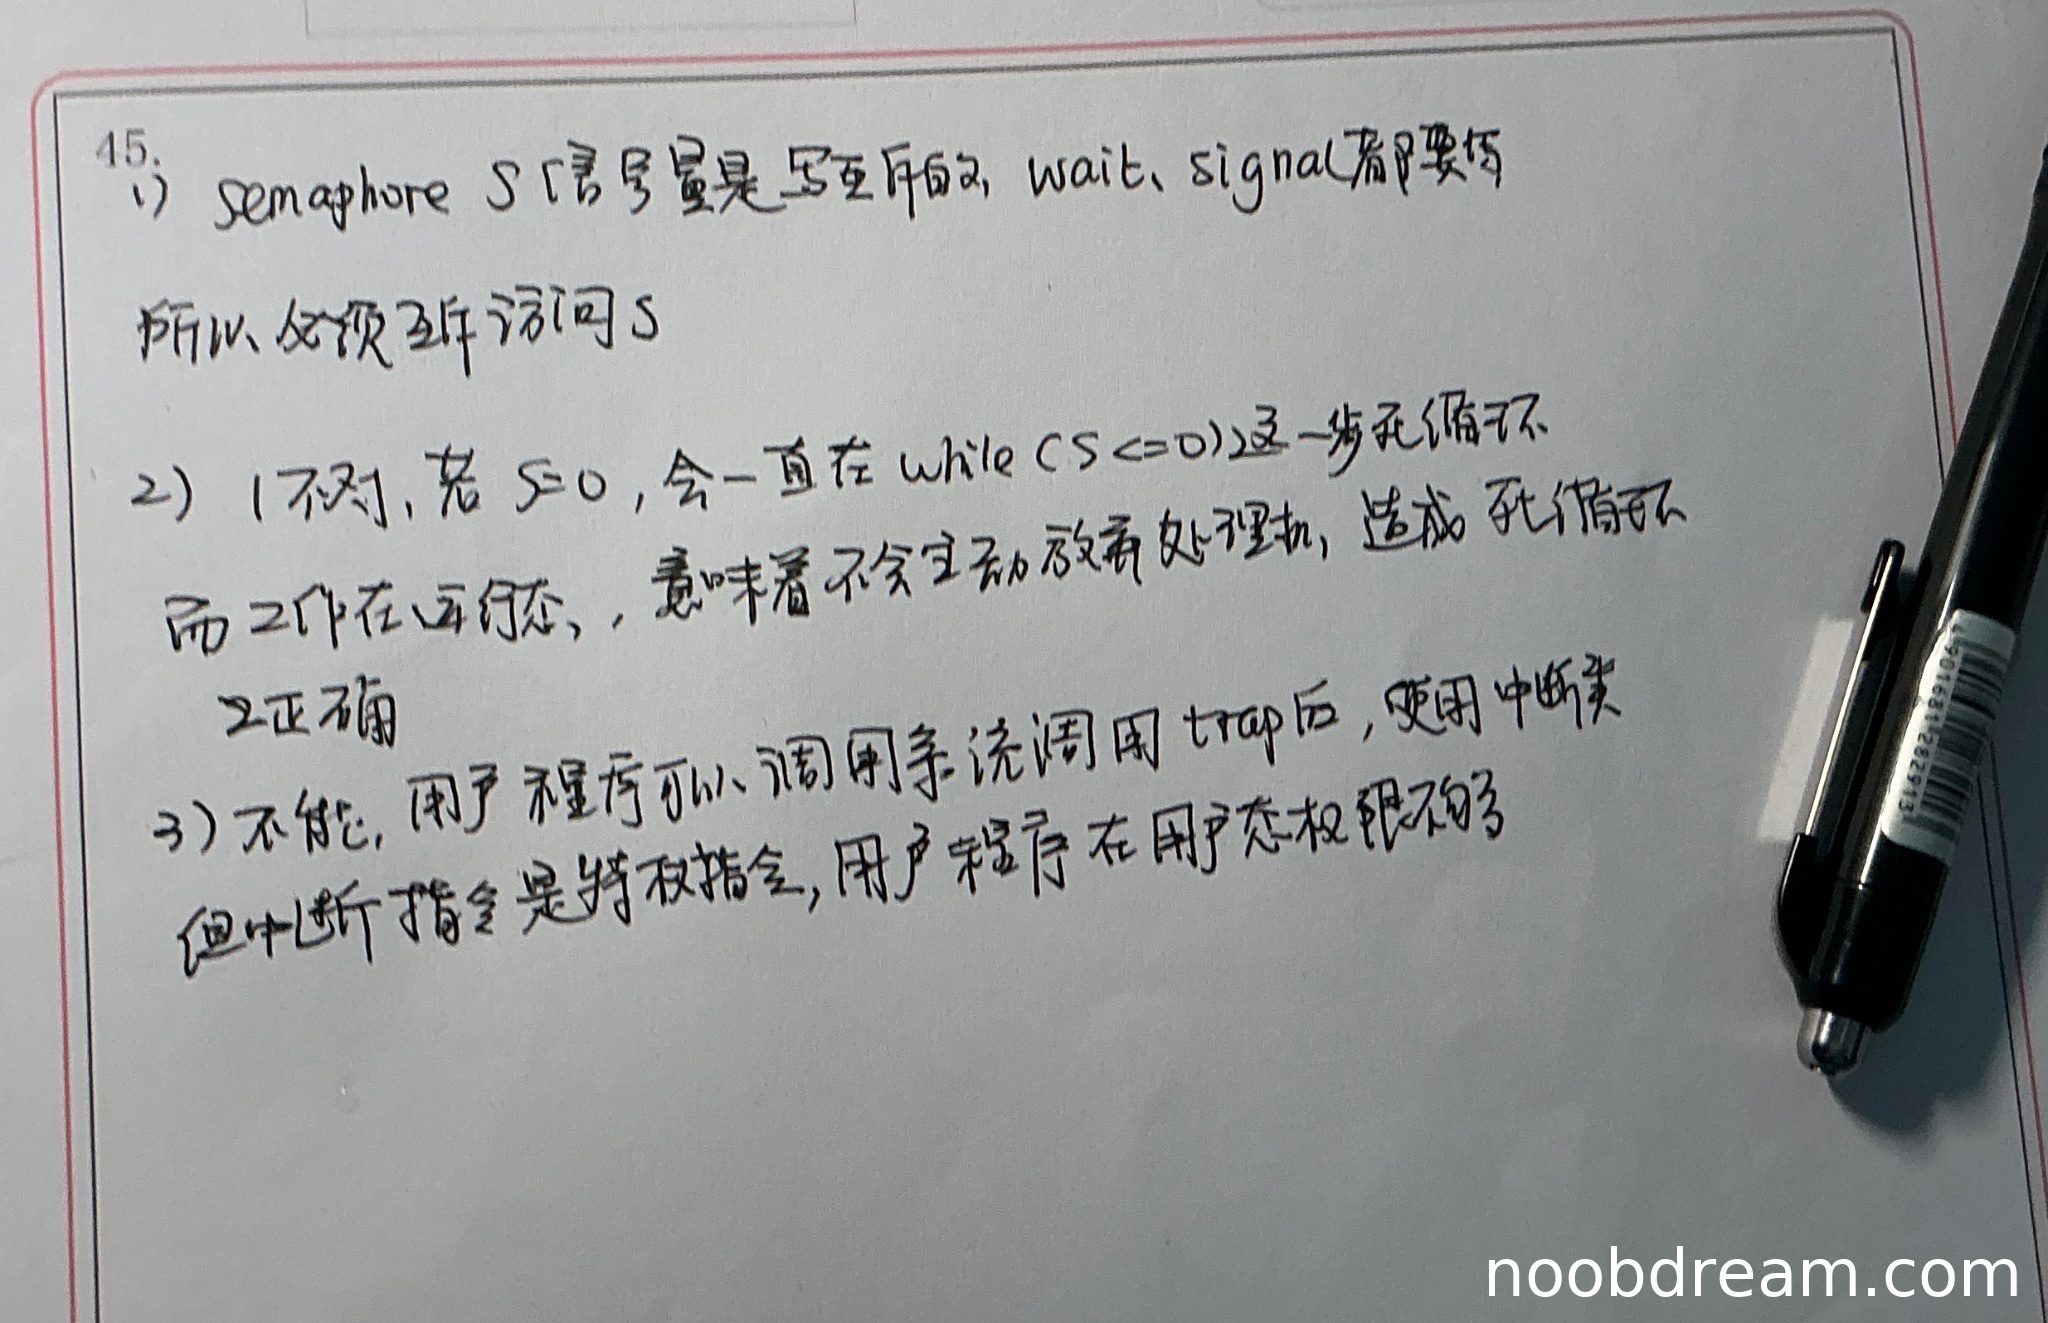 45.
1) semaphore S 信号量是写互斥的, wait、signal都要写
所以必须互斥访问S
2) 1不对, 若 S=0, 会一直在 while (S<=0)这一步死循环
而工作在运行态, , 意味着不会主动放弃处理机, 造成死循环
2正确
3) 不能, 用户程序可以调用系统调用 trap后, 使用中断类
但中断指令是特权指令, 用户程序在用户态权限不够
7901681282913
noobdream.com